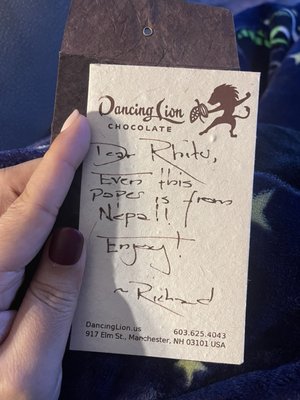 Dancing Lion
CHOCOLATE
Dear Rhitu,
Even this
paper is from
Nepal!
Enjoy!
~Richard
DancingLion.us
603.625.4043
917 Elm St., Manchester, NH 03101 USA